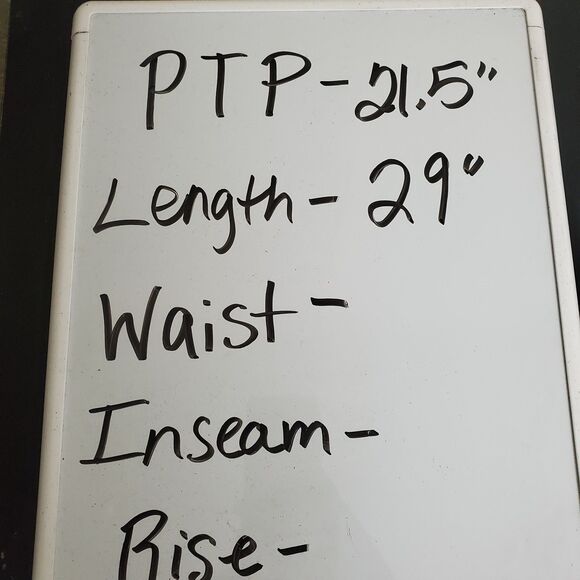 PTP - 21.5"
Length - 29"
Waist -
Inseam -
Rise -